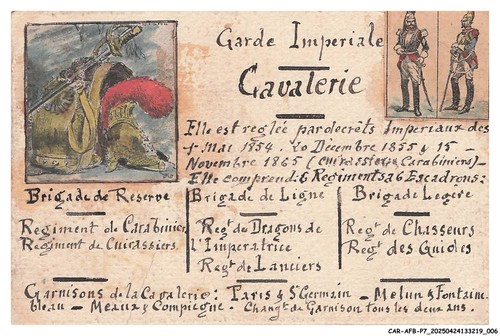 Garde Imperiale
Cavalerie
Elle est reglée par décrets Imperiaux des
1r Mai 1854. 20 Décembre 1855 & 15 -
Novembre 1865 (Cuirassiers Carabiniers) -
Elle comprend: 6 Regiments à 6 Escadrons:
Brigade de Reserve
Regiment de Carabiniers
Regiment de Cuirassiers
Brigade de Ligne
Regt de Dragons de
l'Imperatrice
Regt de Lanciers
Brigade Legere
Regt de Chasseurs
Regt des Guides
Garnisons de la Cavalerie: Paris & St Germain - Melun & Fontaine-
bleau - Meaux & Compiegne. Changt de Garnison tous les deux ans.
CAR-AFB-P7_20250424133219_006